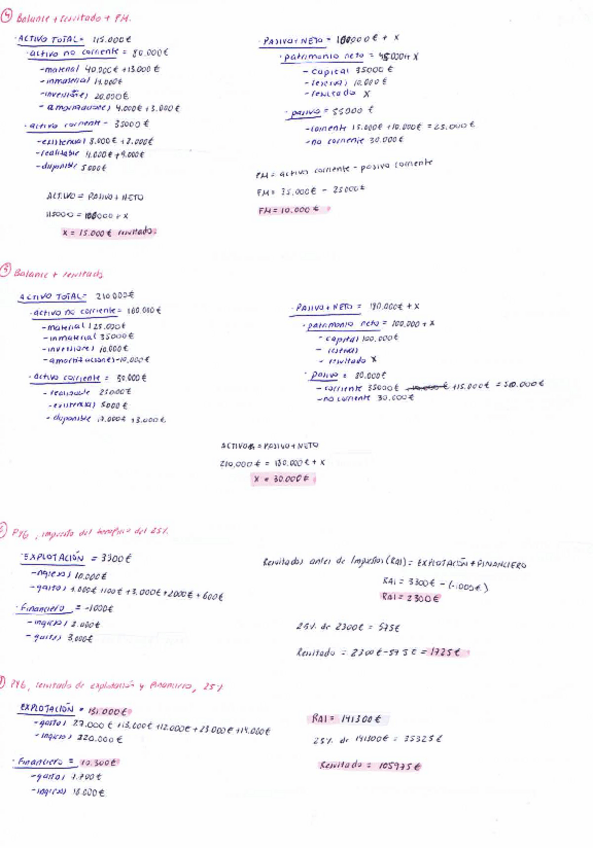 ④ Balance + resultado + FM.
· ACTIVO TOTAL = 115.000€
· activo no corriente = 80.000€
- material 40.000€ + 13.000€
- inmaterial
- inversiones 20.000€
- amortizaciones 4.000€ + 3.000€
· activo corriente = 35000€
- existencias 8.000€ +
- realizable 4.000€ + 9.000€
- disponible 5000€
ACTIVO = PASIVO + NETO
115000 = 100000 + X
X = 15.000€ resultado
· PASIVO + NETO = 100000€ + X
· patrimonio neto = 45000 + X
- capital 35000€
- reservas 10.000€
- resultado X
· pasivo = 55000€
- corriente 15.000€ + 10.000€ = 25.000€
- no corriente 30.000€
FM = activo corriente - pasivo corriente
FM = 35.000€ - 25000€
FM = 10.000€
Balance + resultado
ACTIVO TOTAL = 210.000€
· activo no corriente = 160.000€
- material 125.000€
- inmaterial 35000€
- inversiones 10.000€
- amortizaciones -10.000€
· activo corriente = 50.000€
- realizable 25000€
- existencias 5000€
- disponible 17.000€ + 3.000€
· PASIVO + NETO = 180.000€ + X
· patrimonio neto = 100.000 + X
- capital 100.000€
- reservas
- resultado X
· pasivo = 80.000€
- corriente 35000€ + 15.000€ =
- no corriente 30.000€
ACTIVO = PASIVO + NETO
210.000€ = 180.000€ + X
X = 30.000€
PYG, impuesto del beneficio del 25%
· EXPLOTACIÓN = 3300€
- ingresos 10.000€
- gastos 1.000€ 1100€ + 3.000€ + 2000€ + 600€
· Financiero = -1000€
- ingresos 2.000€
- gastos 3.000€
Resultados antes de Impuestos (RAI) = EXPLOTACIÓN + FINANCIERO
RAI = 3300€ - (-1000€)
RAI = 2300€
25% de 2300€ = 575€
Resultado = 2300€ - 575€ = 1725€
PYG, resultado de explotación y financiero, 25%
EXPLOTACIÓN = 131.000€
- gastos 27.000€ + 13.000€ + 12.000€ + 23.000€ + 14.000€
- ingresos 220.000€
· Financiero = 10.300€
- gastos 7.700€
- ingresos 18.000€
RAI = 141300€
25% de 141300€ = 35325€
Resultado = 105975€